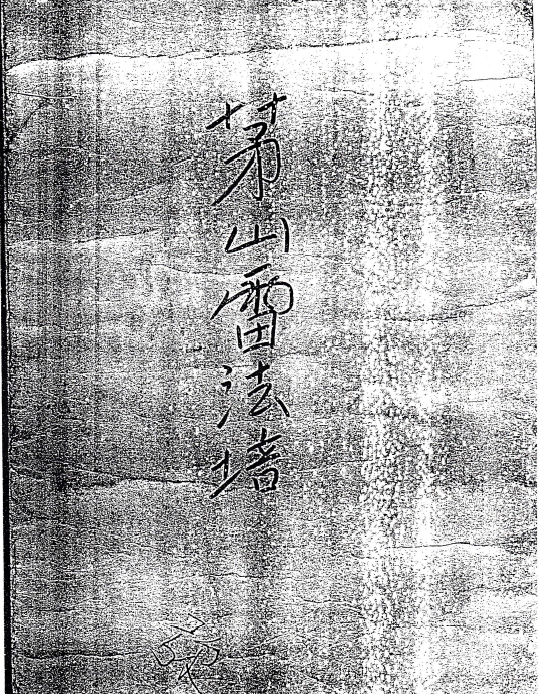 茅山雷法培